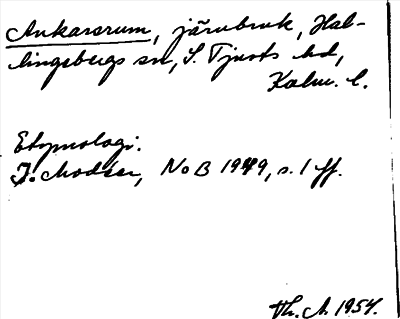 Ankarsrum, järnbruk, Hal-
lingebergs sn, S. Tjusts hd,
Kalm. l.
Etymologi.
I. Modéer, NoB 1949, s. 1 ff.
Th. A. 1954.